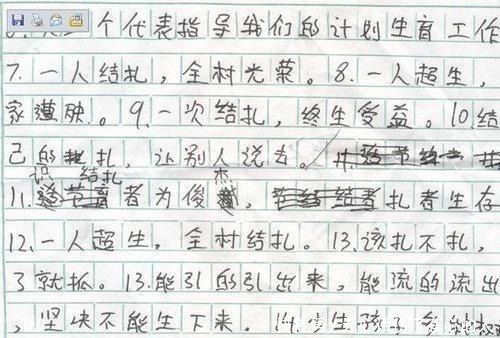 个代表指导我们的计划生育工作
7.一人结扎,全村光荣。8.一人超生,
家遭殃。9.一次结扎,终生受益。10.结
己的扎,让别人说去。
识结扎 杰
11.者为俊,扎者生存
12.一人超生,全村结扎。13.该扎不扎,
了就抓。13.能引的引出来,能流的流出
,坚决不能生下来。14.少生孩子